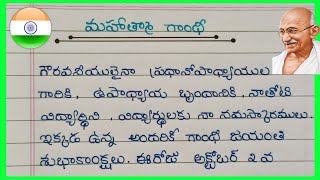 మహాత్మా గాంధీ
గౌరవనీయులైనా ప్రధానోపాధ్యాయుల
గారికి, ఉపాధ్యాయ బృందానికి, నాతోటి
విద్యార్థిని, విద్యార్థులకు నా నమస్కారములు.
ఇక్కడ ఉన్న అందరికీ గాంధీ జయంతి
శుభాకాంక్షలు. ఈరోజు అక్టోబర్ 2 వ